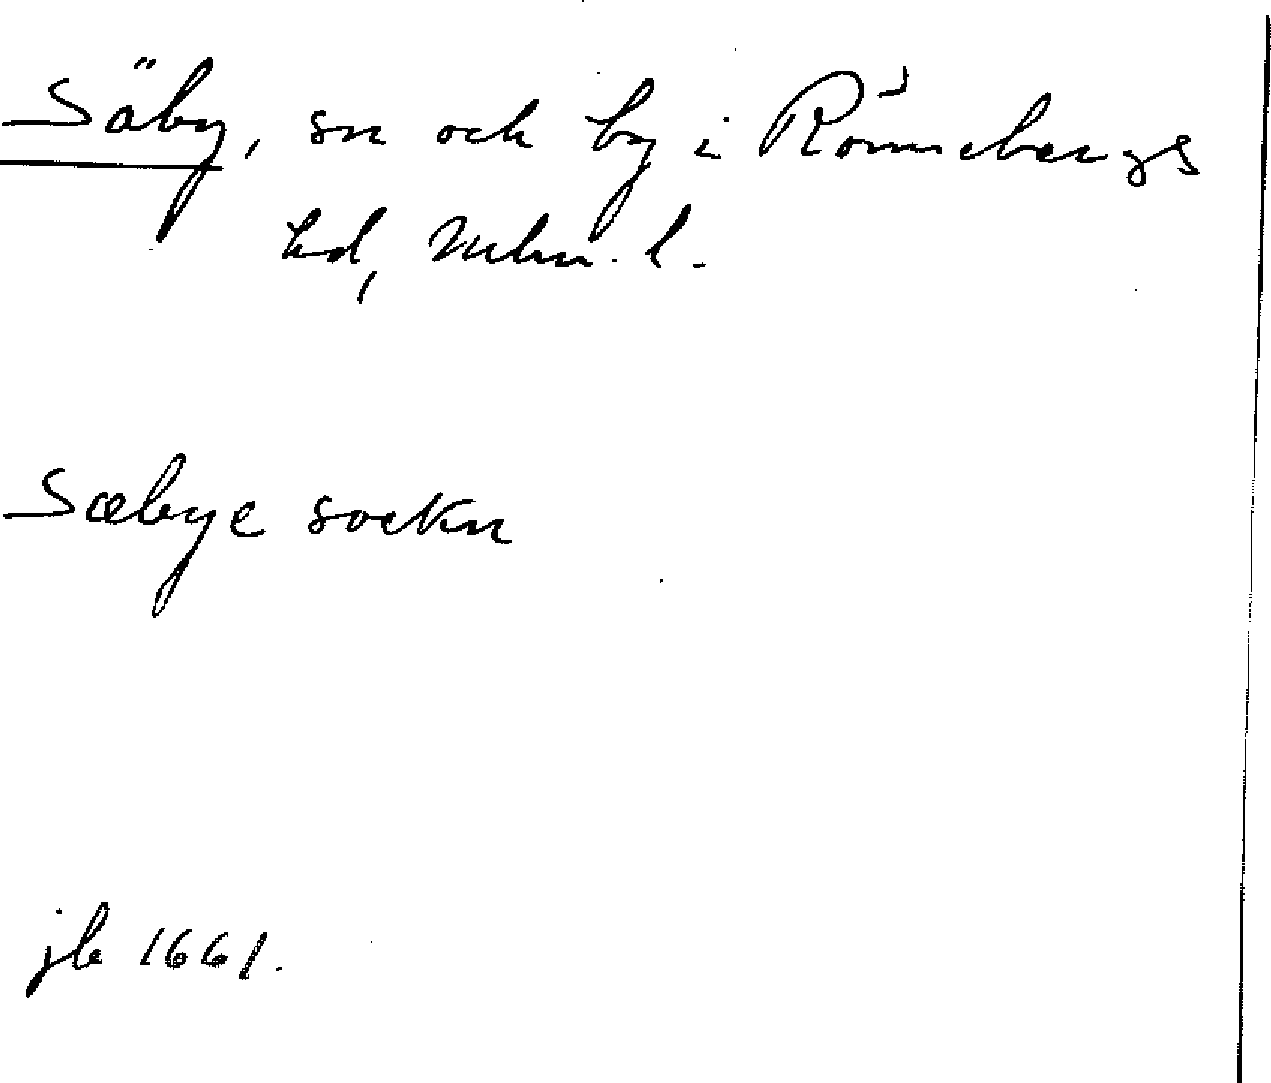 Säby, sn och by i Rönnebergs
hd, Mlm. l.
Sæbye sockn
jb 1661.